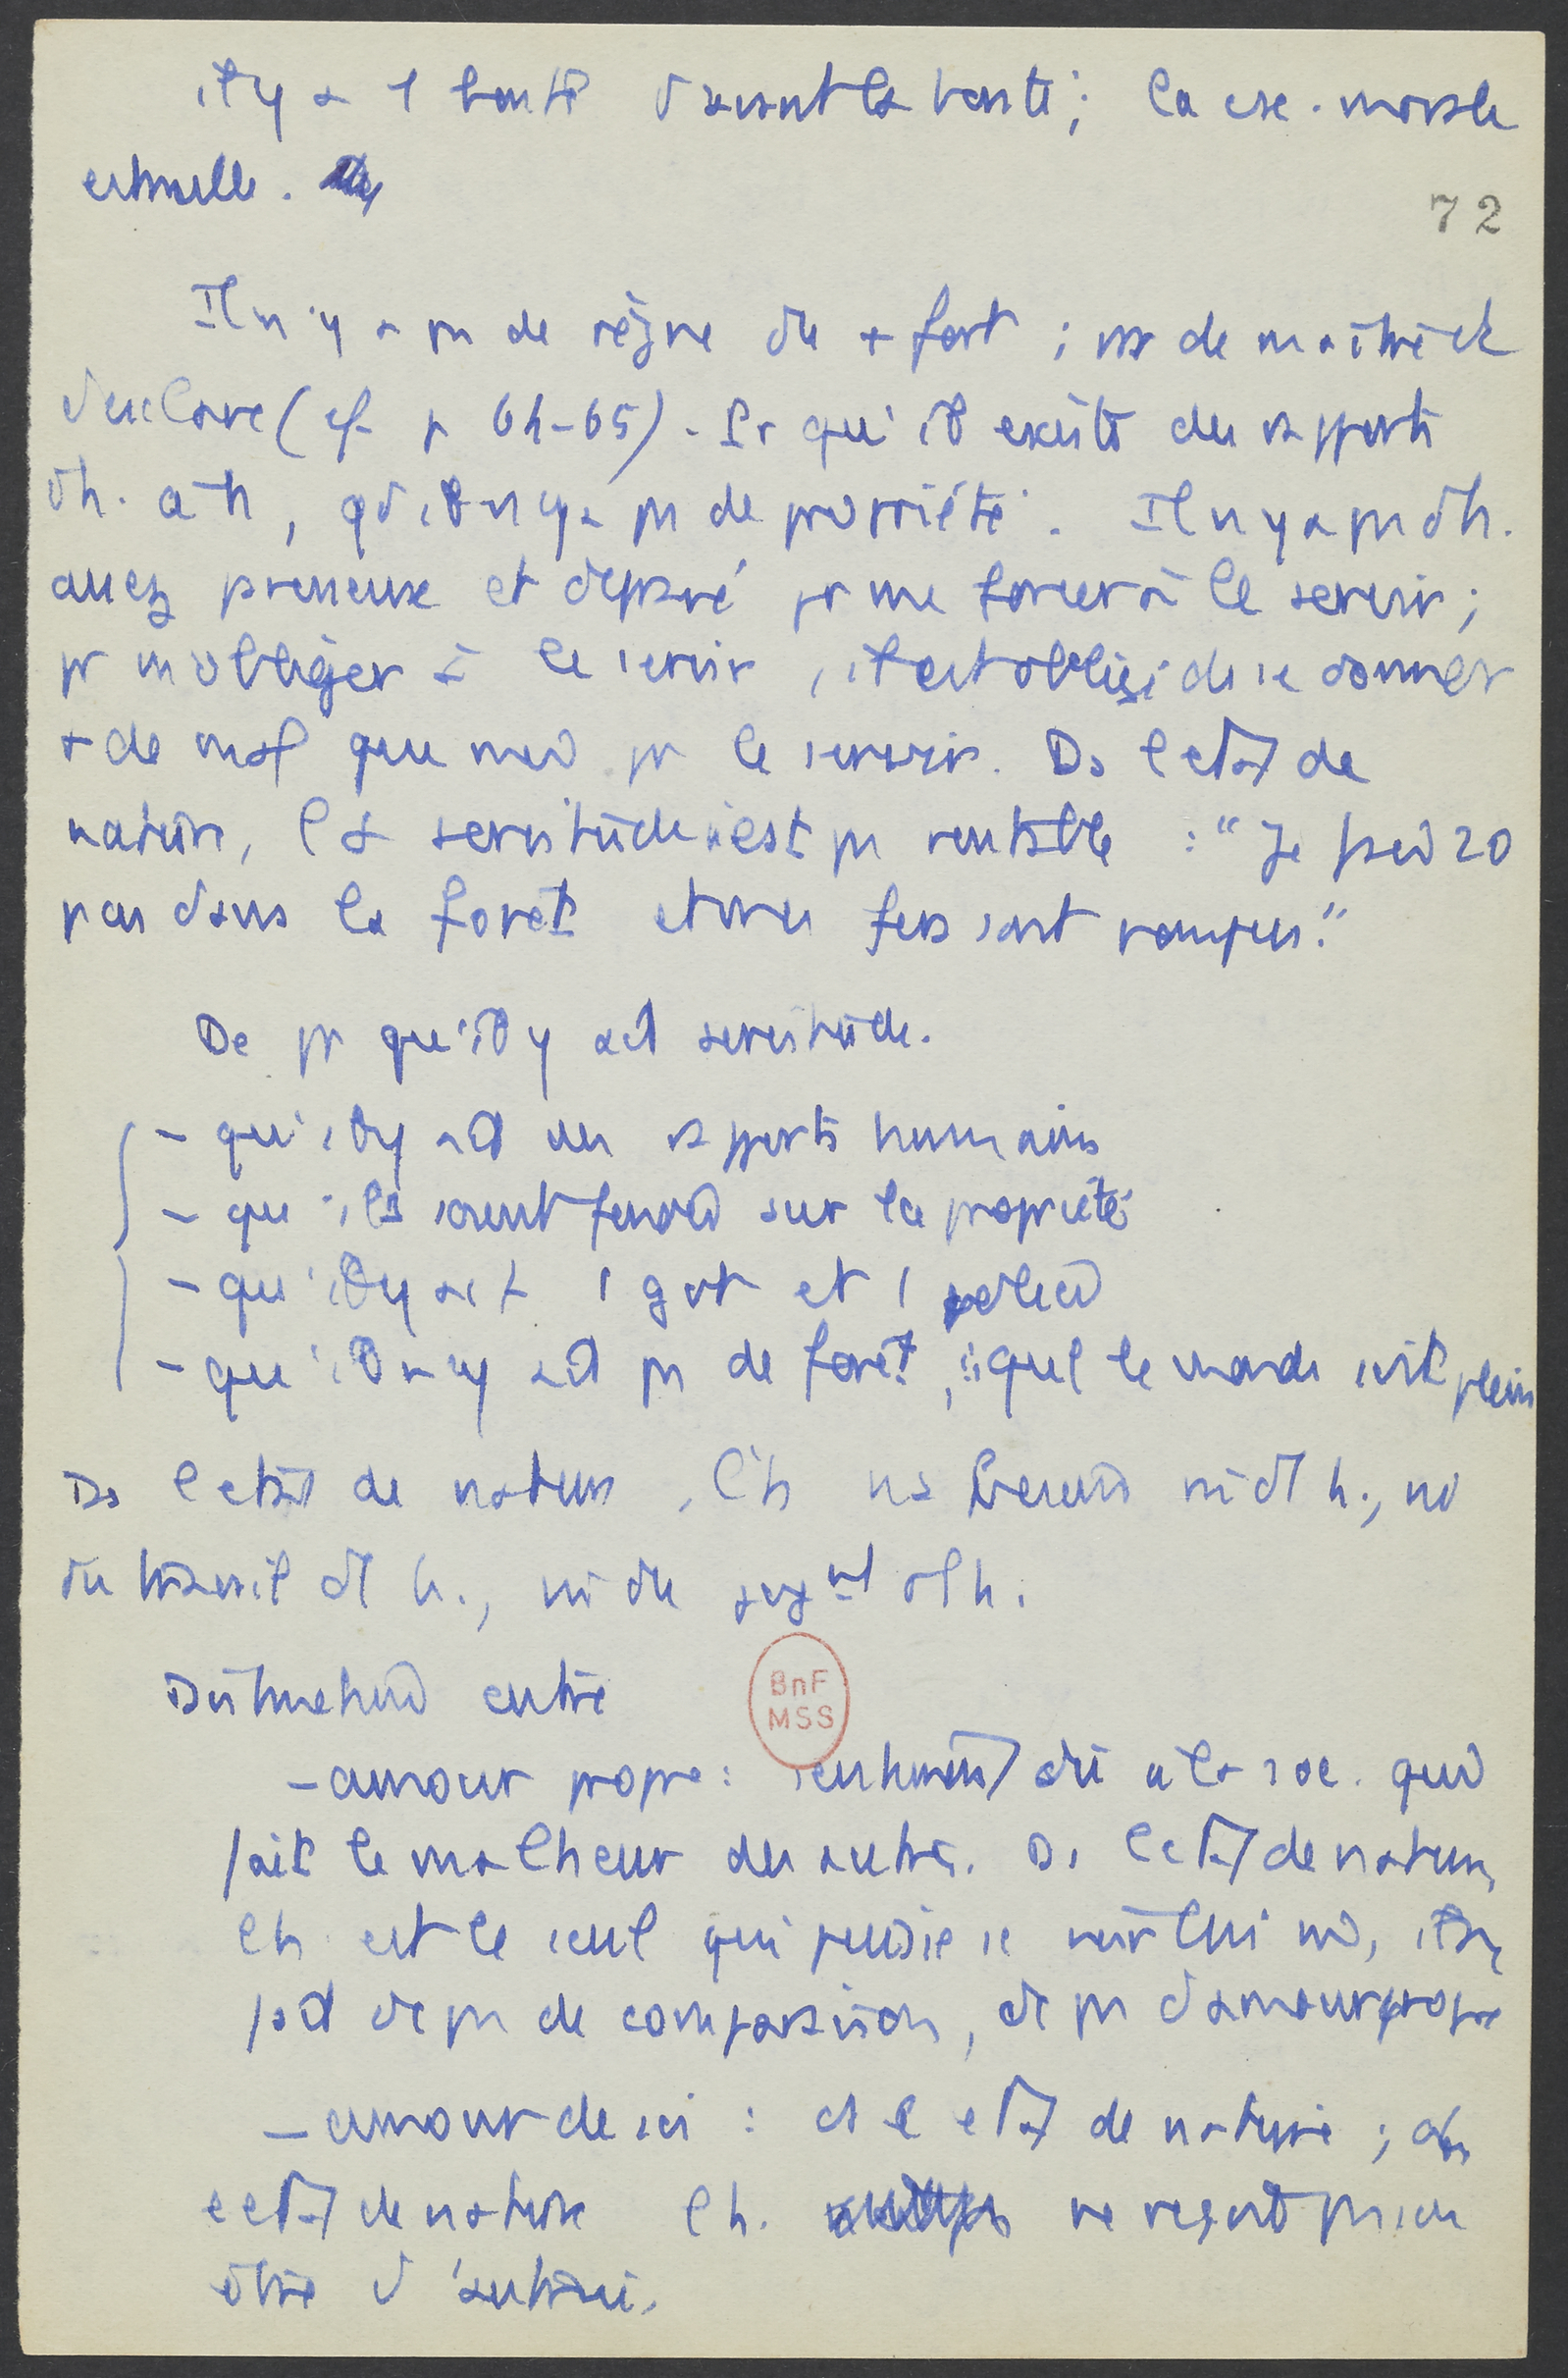 il y a 1 bonté d'avant la bonté ; la csc. morale
est nulle.
72
Il n'y a pas de règne du + fort ; pas de maître et
d'esclave (cf p 64-65). Pr qu'il existe des rapports
d'h. à h, qd il n'y a pas de propriété. Il n'y a pas d'h.
assez paresseux et dépravé pr me forcer à le servir ;
pr m'obliger à le servir, il est obligé de se donner
+ de mal que moi pr le servir. Ds l'état de
nature, la servitude n'est pas rentable : "Je fais 20
pas dans la forêt et mes fers sont rompus."
De pr qu'il y ait servitude.
- qu'il y ait des rapports humains
- qu'ils soient fondés sur la propriété
- qu'il y ait 1 gvt et 1 police
- qu'il n'y ait pas de forêt, : que le monde soit plein
Ds l'état de nature, l'h n'a besoin ni dl h., ni
du travail dl h., ni du dl h.
Distinction entre
BnF
MSS
- amour propre : sentiment dû à la soc. qui
fait le malheur des autres. Ds l'état de nature,
l'h. est le seul qui puisse se voir lui m̂,
fait dc pas de comparaison, dc pas d'amour propre
- amour de soi : ds l'état de nature ; ds
l'état de nature l'h. ne reçoit pas son
être d'autrui.